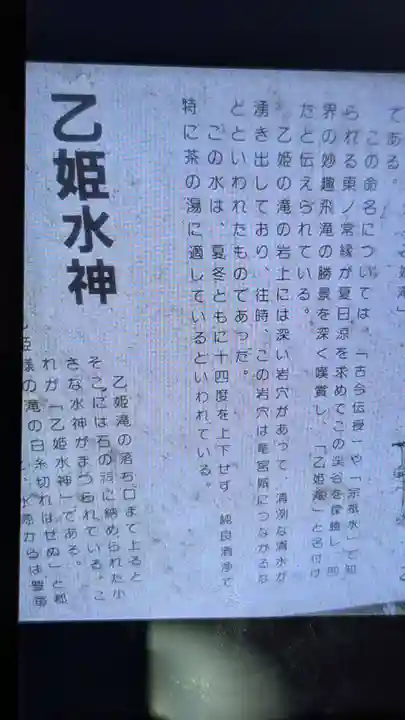 である。
この命名については、「古今伝授」や「宗祇水」で知
られる東ノ常縁が夏日涼を求めてこの渓谷を探勝し、
界の妙趣飛滝の勝景を深く嘆賞し、「乙姫滝」と名付け
たと伝えられている。
乙姫の滝の岩上には深い岩穴があって、清冽な清水が
湧き出しており、往時、この岩穴は竜宮城につながるな
どといわれたものであった。
この水は、夏冬ともに十四度を上下せず、純良清浄で
特に茶の湯に適しているといわれている。
乙姫水神
乙姫滝の落ち口まで上ると
そこには石の祠に納められた小
さな水神がまつられている。こ
れが「乙姫水神」である。
滝の白糸切れはせぬ」と郷
水源からは豊富